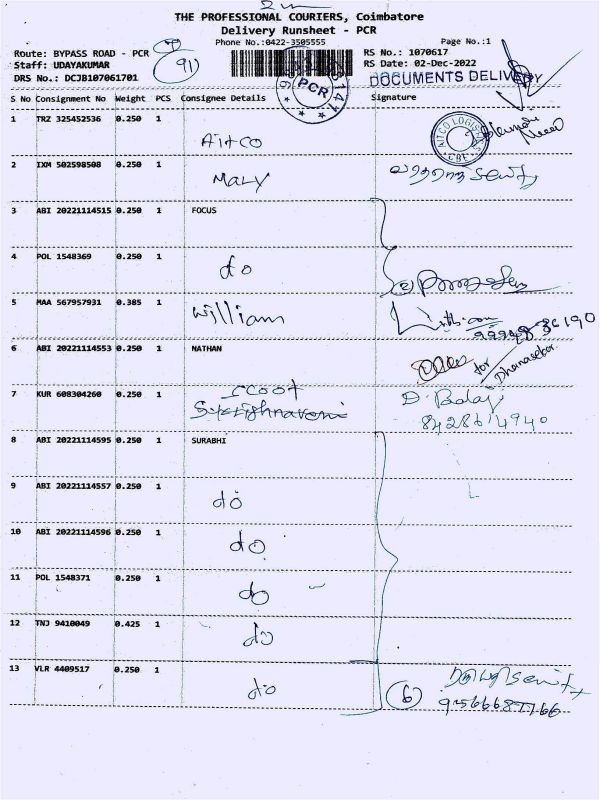 THE PROFESSIONAL COURIERS, Coimbatore
Delivery Runsheet - PCR
Phone No.:0422-3505555 Page No.:1
Route: BYPASS ROAD - PCR RS No.: 1070617
Staff: UDAYAKUMAR 91 RS Date: 02-Dec-2022
DRS No.: DCJB107061701 PCR DOCUMENTS DELIVERY
S No Consignment No Weight PCS Consignee Details Signature
1 TRZ 325452536 0.250 1
AITCO AITCO LOGISTICS CBE
2 IXM 502598508 0.250 1
MALY
3 ABI 20221114515 0.250 1 FOCUS
4 POL 1548369 0.250 1
do 2
5 MAA 567957931 0.385 1
William
6 ABI 20221114553 0.250 1 NATHAN
for Dhanasekar
7 KUR 608304260 0.250 1
D. Balaji
8428614940
8 ABI 20221114595 0.250 1 SURABHI
9 ABI 20221114557 0.250 1
do
10 ABI 20221114596 0.250 1
do
11 POL 1548371 0.250 1
do
12 TNJ 9410049 0.425 1
do
13 VLR 4409517 0.250 1
do 6